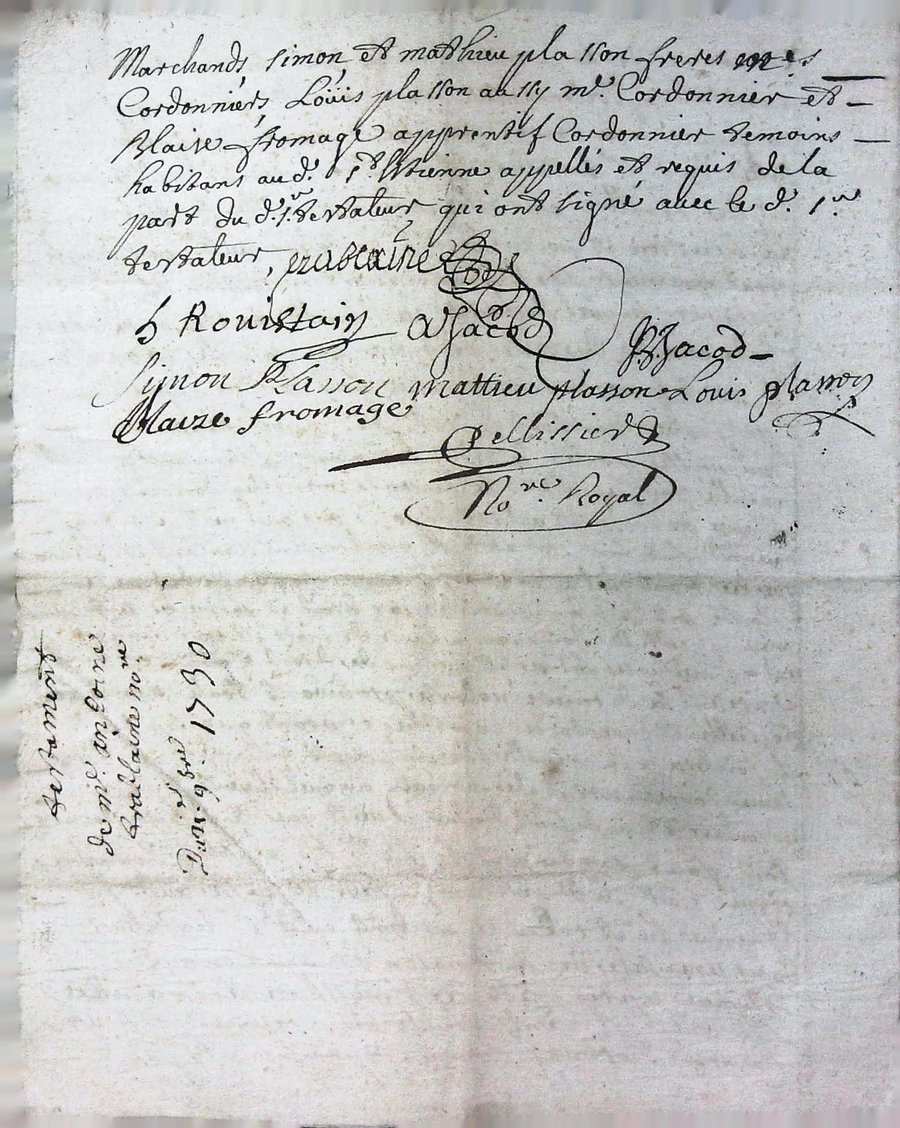 Marchands, simon, et mathieu plasson freres mes
Cordonniers, Loüis plasson aussy me. Cordonnier et
Blaise fromage apprentif Cordonnier temoins
habitans aud. st. Etienne appellés et requis de la
part du d. sr. testateur qui ont signé avec le d. sr.
testateur,
h Rouistain AJacod BJacod
Simon Plasson mathieu plasson Louis plasson
Blaize fromage
Pellissier
Nore. Royal
testament
de me. antoine
trablaine nore.
9bre. 1730